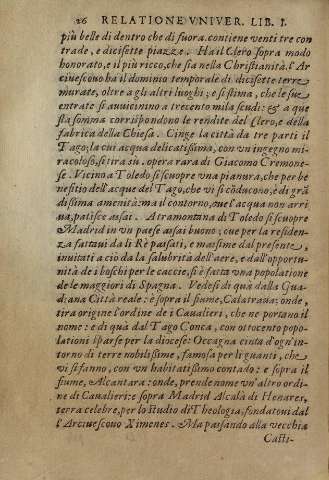 26 RELATIONE VNIVER. LIB. I.
più belle di dentro che di fuora. contiene venti tre con
trade, e dicisette piazze. Ha il Clero sopra modo
honorato, e il più ricco, che sia nella Christianità. l'Ar
ciuescouo ha il dominio temporale di dicisette terre
murate, oltre a gli altri luoghi; e si stima, che le sue
entrate si auuicinino a trecento mila scudi: & a que
sta somma corrispondono le rendite del Clero, e della
fabrica della Chiesa. Cinge la città da tre parti il
Tago; la cui acqua delicatissima, con vn ingegno mi-
racoloso, si tira su. opera rara di Giacomo Cremone-
se. Vicino a Toledo si scuopre vna pianura, che per be
neficio dell'acque del Tago, che vi si cōducono, è di grā
dissima amenità: ma il contorno, oue l'acqua non arri
ua, patisce assai. A tramontana di Toledo si scuopre
Madrid in vn paese assai buono; oue per la residen-
za fattaui da li Rè passati, e massime dal presente,
inuitati a ciò da la salubrità dell'aere, e dall'opportu-
nità de i boschi per le caccie, si è fatta vna popolatione
de le maggiori di Spagna. Vedesi di quà dalla Gua-
diana Città reale: e sopra il fiume, Calatraua: onde,
tira origine l'ordine de i Caualieri, che ne portano il
nome: e di qua dal Tago Conca, con ottocento popo-
lationi sparse per la diocese: Occagna cinta d'ogn'in-
torno di terre nobilissime, famosa per li guanti, che
vi si fanno, con vn habitatissimo contado: e sopra il
fiume, Alcantara: onde, prende nome vn'altro ordi-
ne di Caualieri: e sopra Madrid Alcalà di Henares,
terra celebre, per lo studio di Theologia, fondatoui dal
l'Arciuescouo Ximenes. Ma passando alla vecchia
Casti-